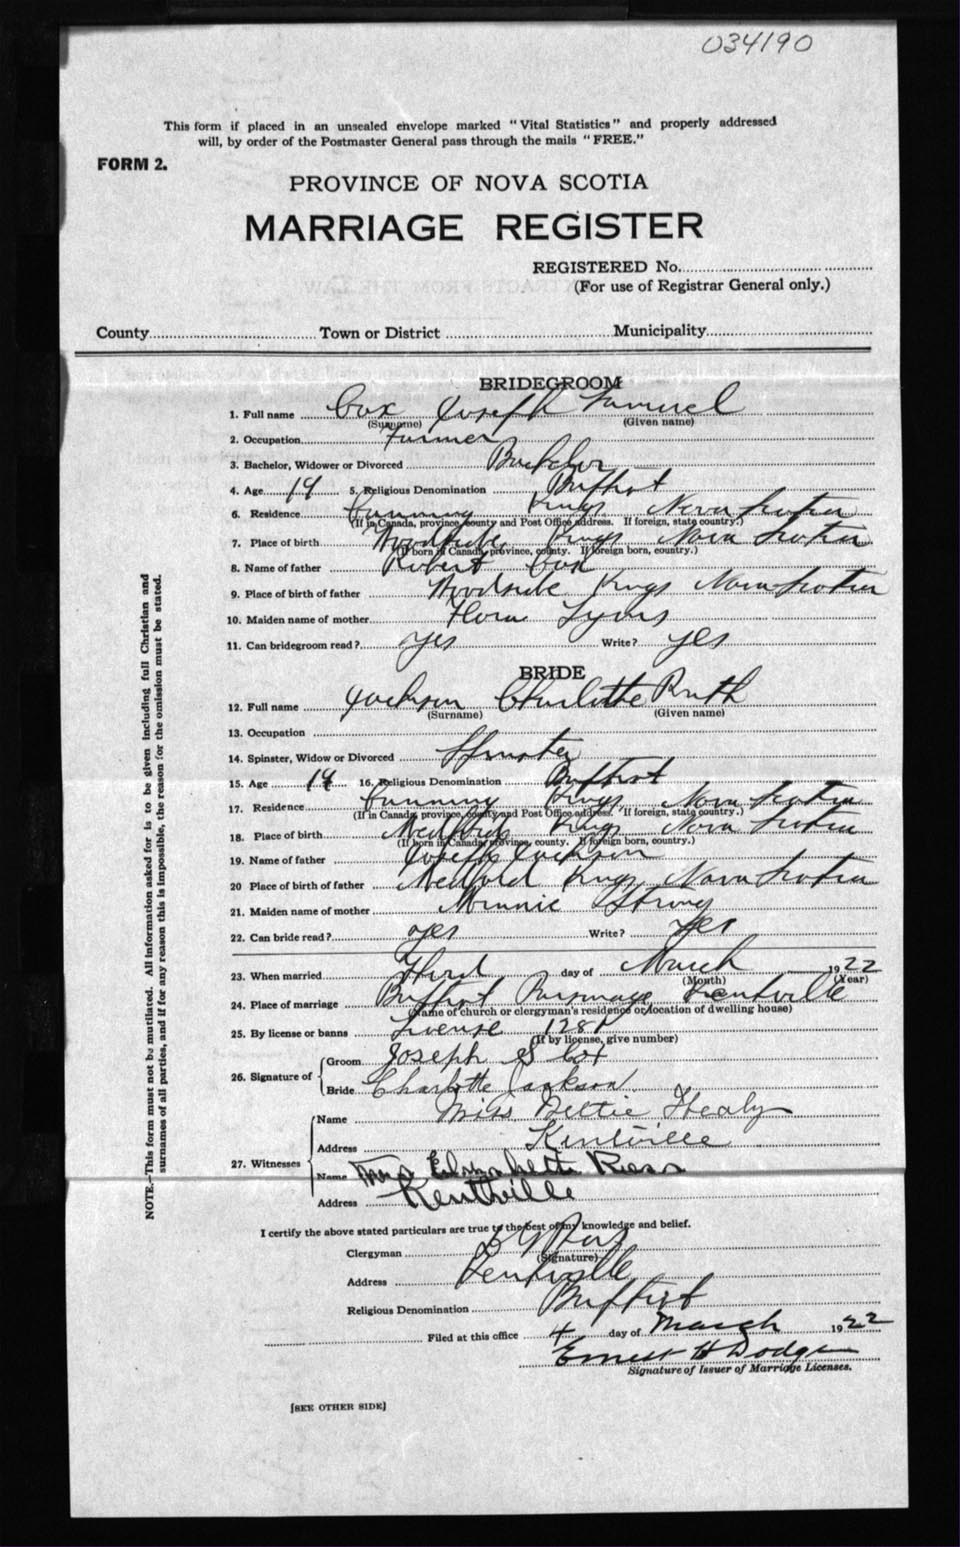 034190
This form if placed in an unsealed envelope marked "Vital Statistics" and properly addressed
will, by order of the Postmaster General pass through the mails "FREE."
FORM 2.
PROVINCE OF NOVA SCOTIA
MARRIAGE REGISTER
REGISTERED No.
(For use of Registrar General only.)
County Town or District Municipality
BRIDEGROOM
1. Full name Cox Joseph Samuel
(Surname) (Given name)
2. Occupation Farmer
3. Bachelor, Widower or Divorced Bachelor
4. Age 19 5. Religious Denomination Baptist
6. Residence Canning Kings Nova Scotia
(If in Canada, province, county and Post Office address. If foreign, state country.)
7. Place of birth Woodside Kings Nova Scotia
(If born in Canada, province, county. If foreign born, country.)
8. Name of father Robert Cox
9. Place of birth of father Woodside Kings Nova Scotia
10. Maiden name of mother Flora Lyons
11. Can bridegroom read? yes Write? yes
BRIDE
12. Full name Jackson Charlotte Ruth
(Surname) (Given name)
13. Occupation
14. Spinster, Widow or Divorced Spinster
15. Age 19 16. Religious Denomination Baptist
17. Residence Canning Kings Nova Scotia
(If in Canada, province, county and Post Office address. If foreign, state country.)
18. Place of birth Medford Kings Nova Scotia
(If born in Canada, province, county. If foreign born, country.)
19. Name of father Joseph Jackson
20 Place of birth of father Medford Kings Nova Scotia
21. Maiden name of mother Minnie Strong
22. Can bride read? yes Write? yes
23. When married Third day of March 1922
(Month) (Year)
24. Place of marriage Baptist Parsonage Kentville
(Name of church or clergyman's residence or location of dwelling house)
25. By license or banns License
(If by license, give number)
26. Signature of Groom Joseph S Cox
Bride Charlotte Jackson
27. Witnesses Name Miss Nettie Healy
Address Kentville
Name Mrs Elizabeth Ross
Address Kentville
I certify the above stated particulars are true to the best of my knowledge and belief.
Clergyman
(Signature)
Address Kentville
Religious Denomination Baptist
Filed at this office 4 day of March 1922
Ernest H Dodge
Signature of Issuer of Marriage Licenses.
[SEE OTHER SIDE]
NOTE.—This form must not be mutilated. All information asked for is to be given including full Christian and
surnames of all parties, and if for any reason this is impossible, the reason for the omission must be stated.